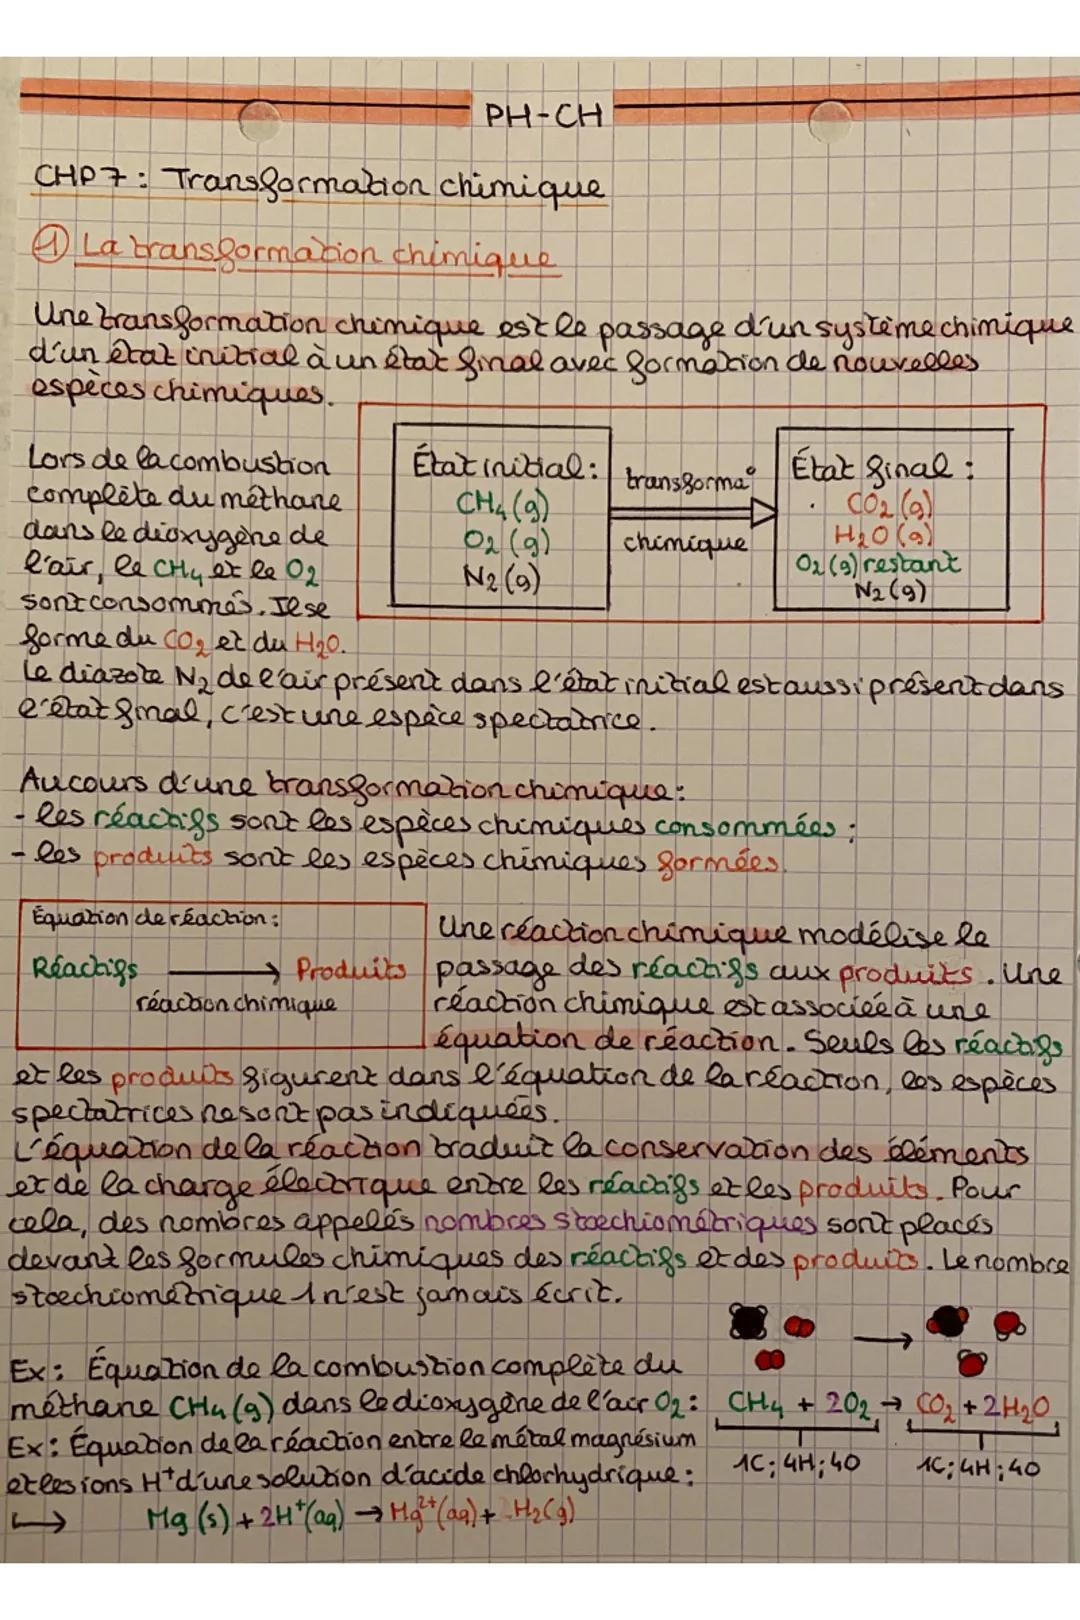 PH-CH
CHP7: Transformation chimique
① La transformation chimique
Une transformation chimique est le passage d'un système chimique
d'un état initial à un état final avec formation de nouvelles
espèces chimiques.
Lors de la combustion
complète du méthane
dans le dioxygène de
l'air, le CH₄ et le O₂
sont consommés. Il se
forme du CO₂ et du H₂O.
État initial:
CH₄ (g)
O₂ (g)
N₂ (g)
transforma°
chimique
État final:
CO₂ (g)
H₂O (g)
O₂ (g) restant
N₂ (g)
Le diazote N₂ de l'air présent dans l'état initial est aussi présent dans
l'état final, c'est une espèce spectatrice.
Au cours d'une transformation chimique:
- les réactifs sont les espèces chimiques consommées;
- les produits sont les espèces chimiques formées.
Équation de réaction:
Réactifs → Produits
réaction chimique
Une réaction chimique modélise le
passage des réactifs aux produits. Une
réaction chimique est associéé à une
équation de réaction. Seuls les réactifs
et les produits figurent dans l'équation de la réaction, les espèces
spectatrices ne sont pas indiquées.
L'équation de la réaction traduit la conservation des éléments
et de la charge électrique entre les réactifs et les produits. Pour
cela, des nombres appelés nombres stoechiométriques sont placés
devant les formules chimiques des réactifs et des produits. Le nombre
stoechiométrique 1 n'est jamais écrit.
Ex: Équation de la combustion complète du
méthane CH₄ (g) dans le dioxygène de l'air O₂: CH₄ + 2O₂ → CO₂ + 2H₂O
1C; 4H; 4O 1C; 4H; 4O
Ex: Équation de la réaction entre le métal magnésium
et les ions H⁺ d'une solution d'acide chlorhydrique:
↪ Mg (s) + 2H⁺(aq) → Mg²⁺(aq) + H₂(g)